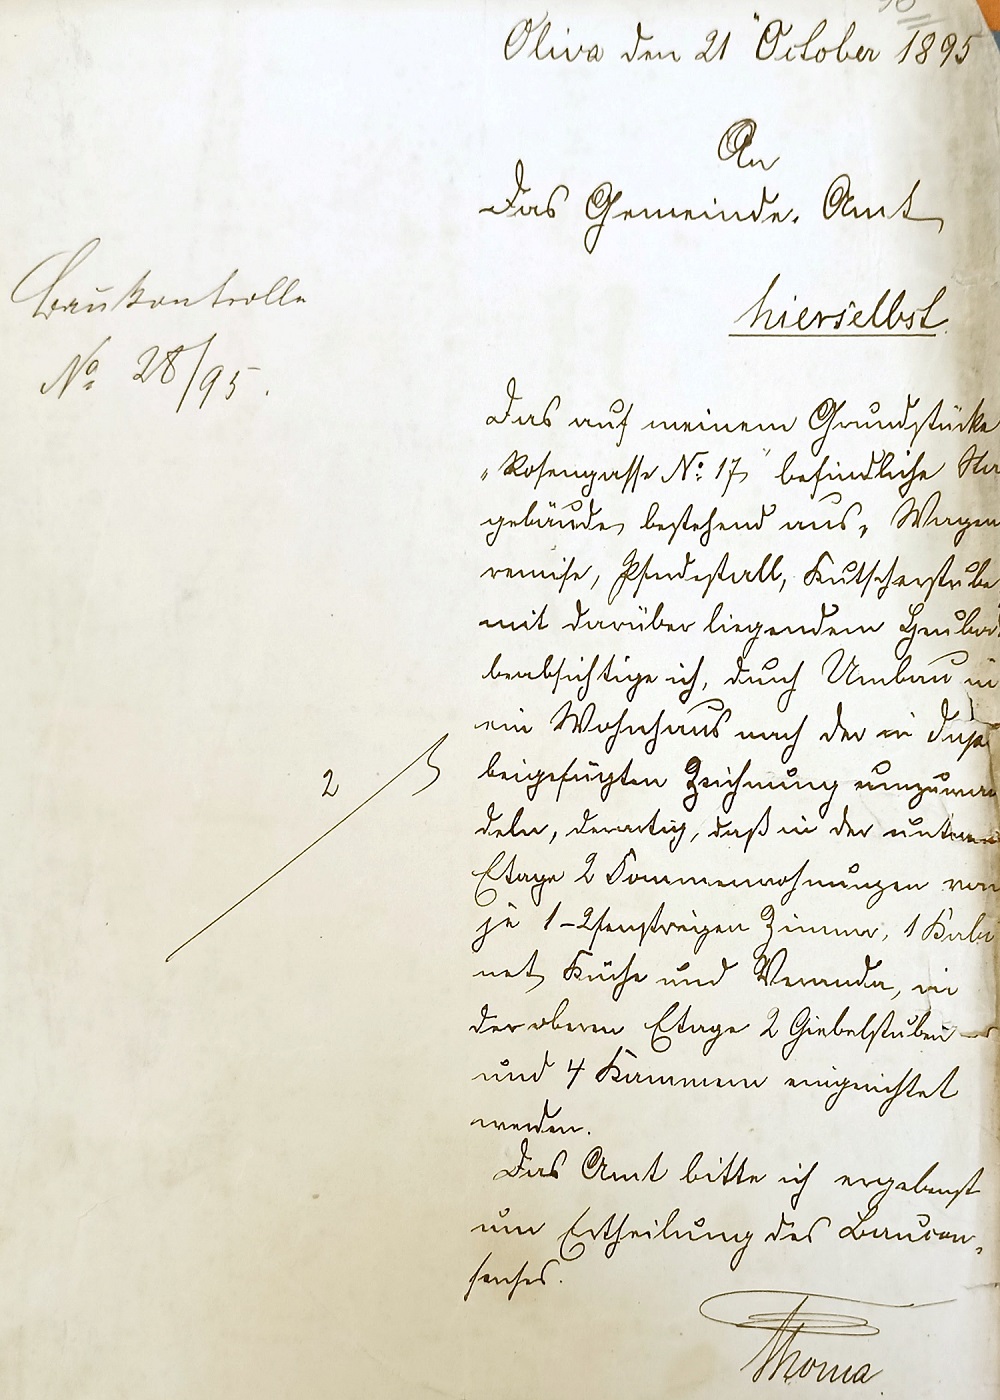 Oliva den 21 October 1895
An
Das Gemeinde-Amt
hierselbst
Baukontrolle
No 28/95.
Das auf meinem Grundstücke
"Rosengasse No: 17" befindliche Sta
gebäude, bestehend aus, Wagen
remise, Pferdestall, Kutscherstube
mit darüber liegendem Heubod
beabsichtige ich, durch Umbau in
ein Wohnhaus nach der in
beigefügten Zeichnung umzuwan
deln, derartig, daß in der unteren
Etage 2 Sommerwohnungen von
je 1-2fenstrigen Zimmer, 1 Kabi
net, Küche und Veranda, in
der oberen Etage 2 Giebelstuben
und 4 Kammern eingerichtet
werden.
Das Amt bitte ich ergebenst
um Ertheilung des Baucon-
senses.
Thoma
2